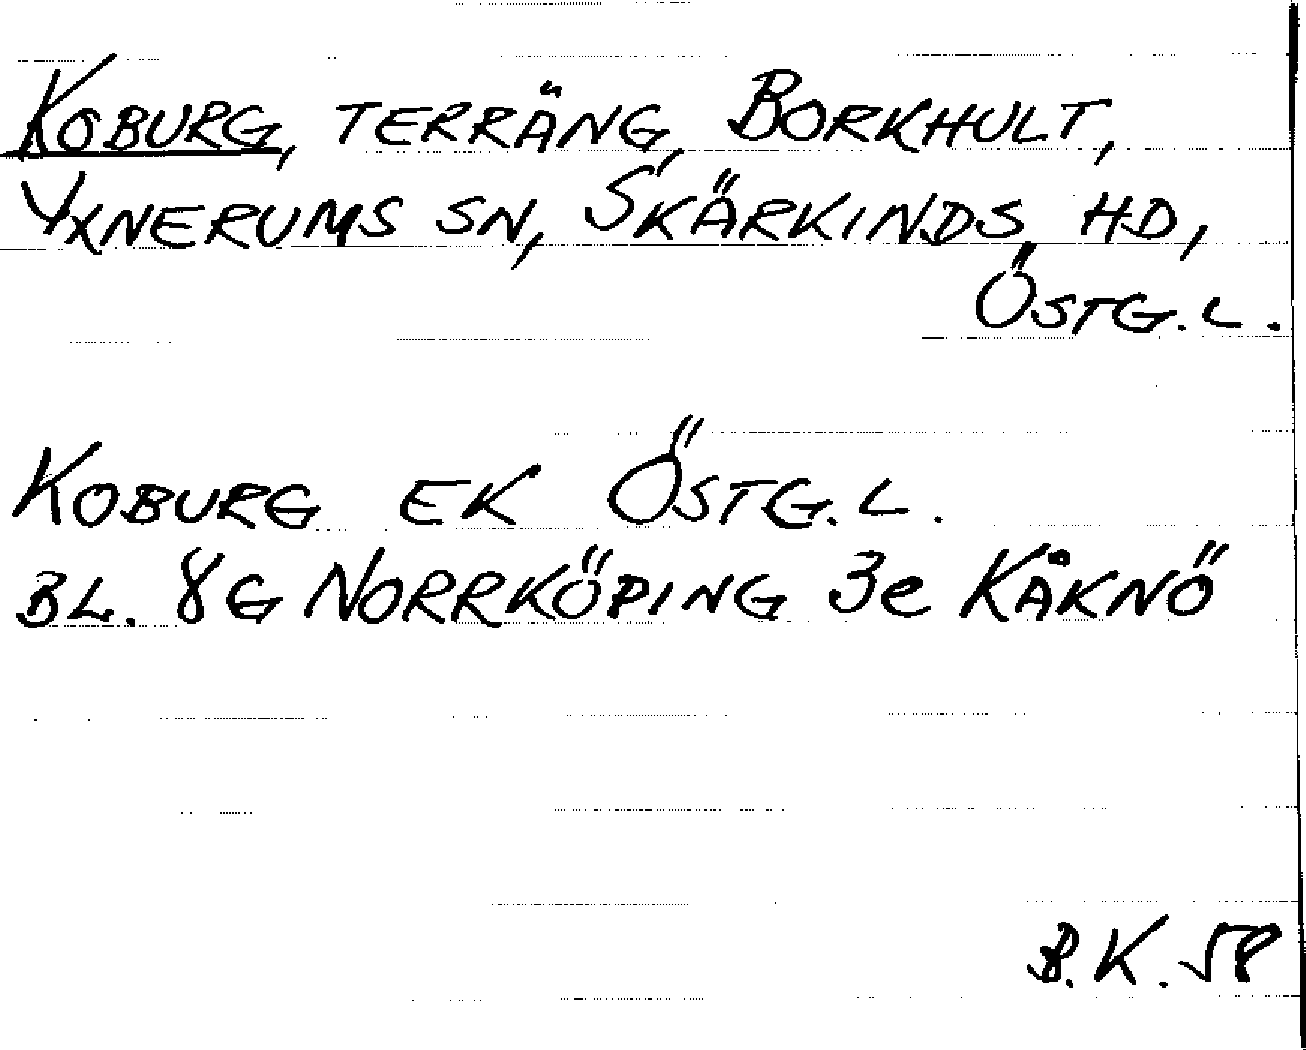 KOBURG, TERRÄNG, BORKHULT,
YXNERUMS SN, SKÄRKINDS HD,
ÖSTG. L.
KOBURG EK ÖSTG. L.
BL. 8G NORRKÖPING 3e KÅKNÖ
B.K. 58